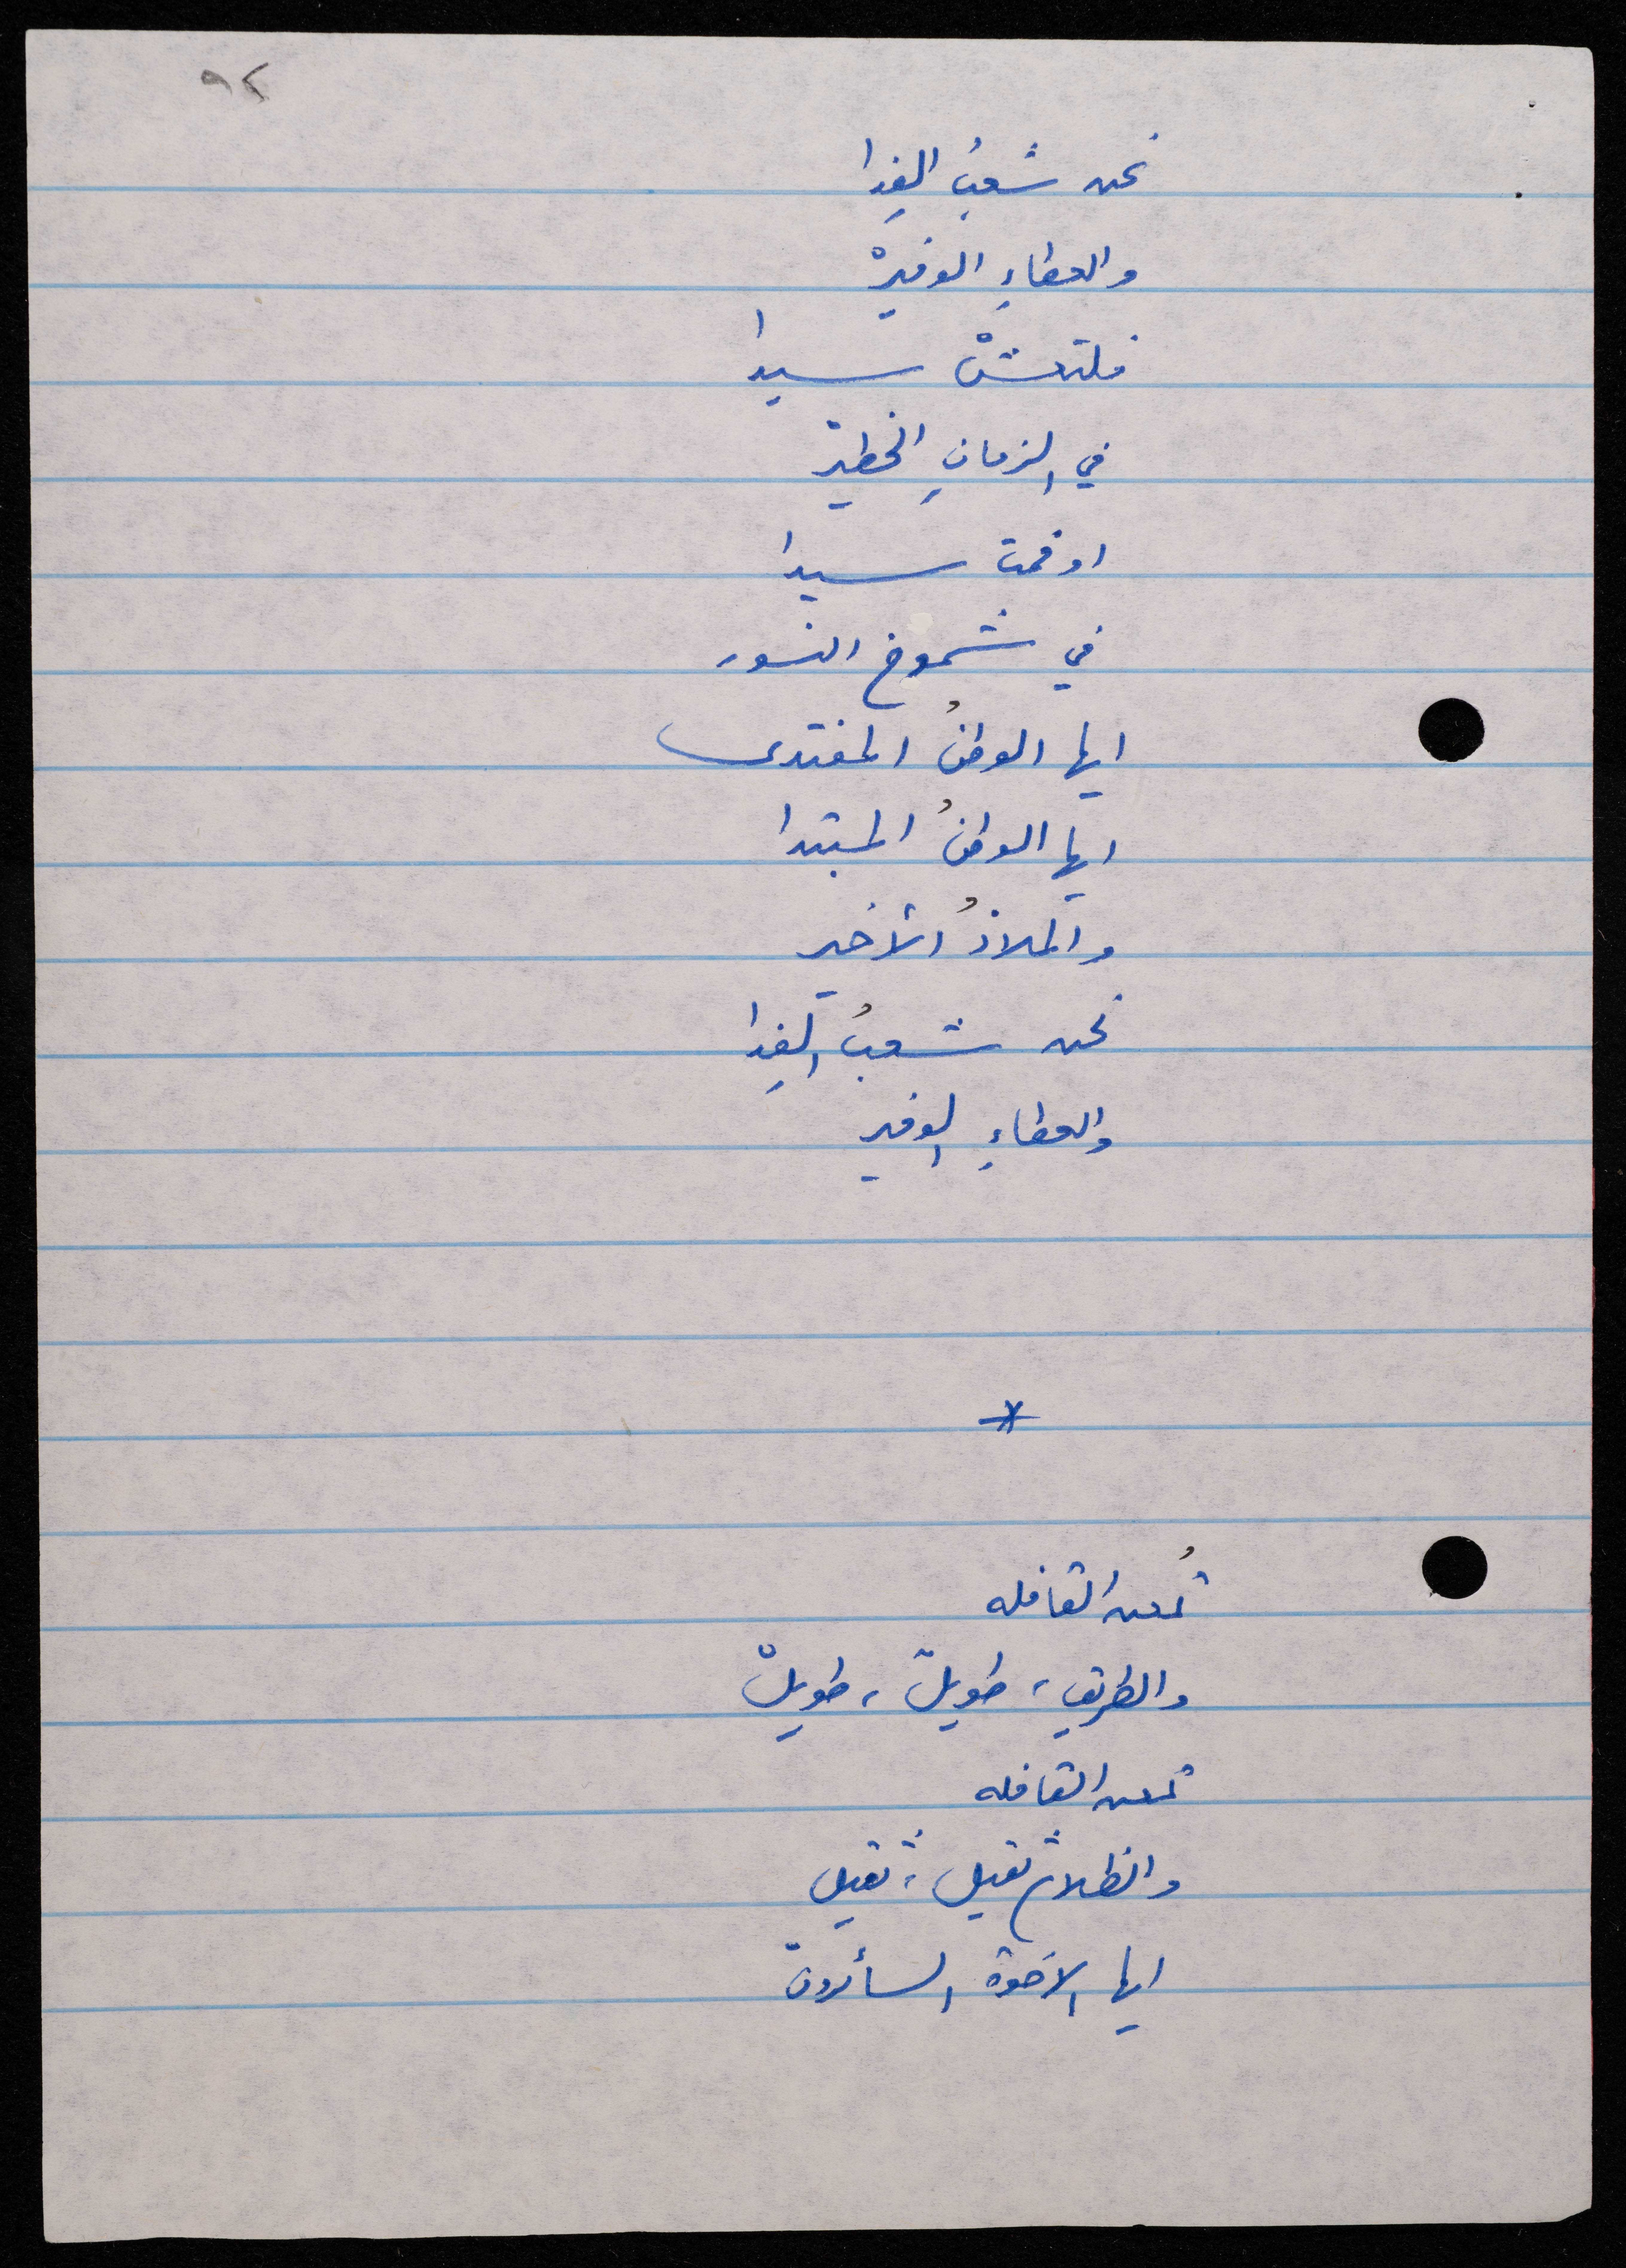 ٩٢
نحن شعبُ الفِدا
والعطاءِ الوفيرْ
فلتعشْ سيدا
في الزمانِ الخطير
او فمت سيدا
في شموخ النسور
ايها الوطنُ المفتدى
ايها الوطنُ المبتدا
والملاذُ الأخير
نحن شعبُ الفِدا
والعطاءِ الوفير
*
تُمعن القافله
والطريق، طويلْ، طويلْ
تمعن القافله
والظلام ثقيل، ثقيل
ايها الاخوة السأرون